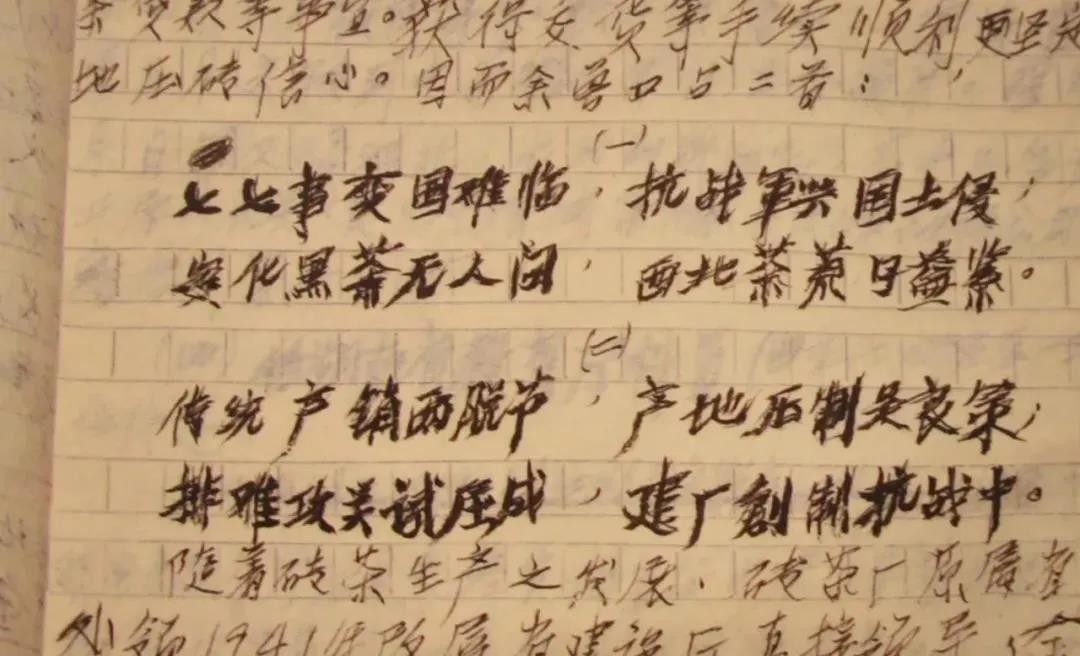 贷款等事宜。获得交货等手续顺利更坚定
地压砖信心。因而余曾口占二首：
(一)
七七事变国难临，抗战军兴国土侵，
安化黑茶无人问，西北茶荒日益紧。
(二)
传统产销两脱节，产地压制是良策，
排难攻关试压成，建厂創制抗战中。
随着砖茶生产之发展，砖茶厂原属省
1941年改属省建设厅直接领导